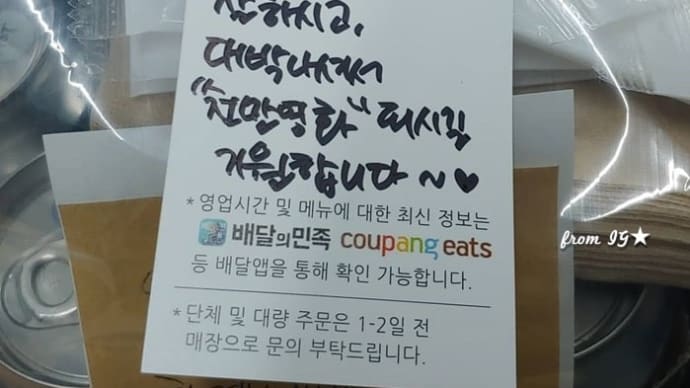 잘하시고,
대박나셔서
"천만영화" 되시길
기원합니다 ~ ♥
* 영업시간 및 메뉴에 대한 최신 정보는
배달의민족 coupang eats
등 배달앱을 통해 확인 가능합니다.
* 단체 및 대량 주문은 1-2일 전
매장으로 문의 부탁드립니다.
from IG★